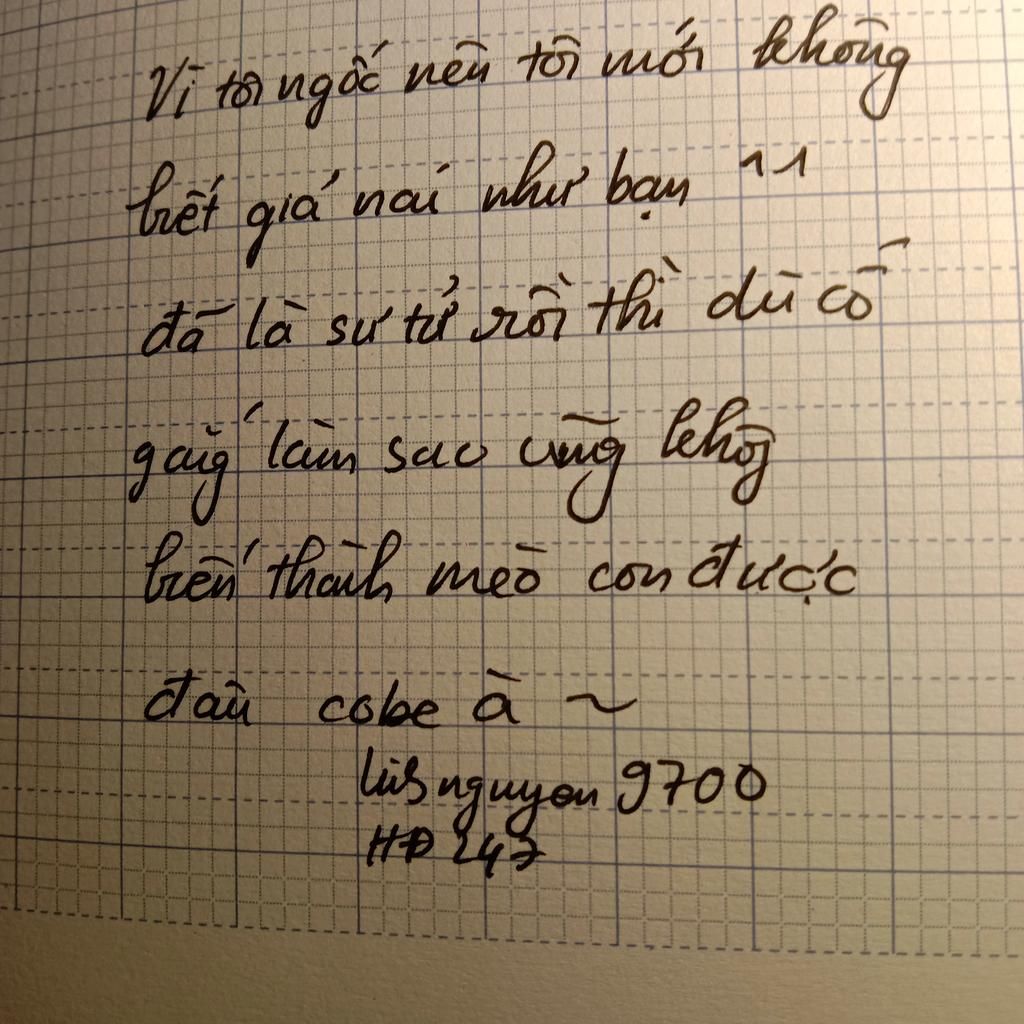 Vì tôi ngốc nên tôi mới không
biết giả nai như bạn ^^
đã là sư tử rồi thì dù cố
gắng làm sao cũng không
biến thành mèo con được
đâu cobe à ~
nguyen 9700
HĐ 247